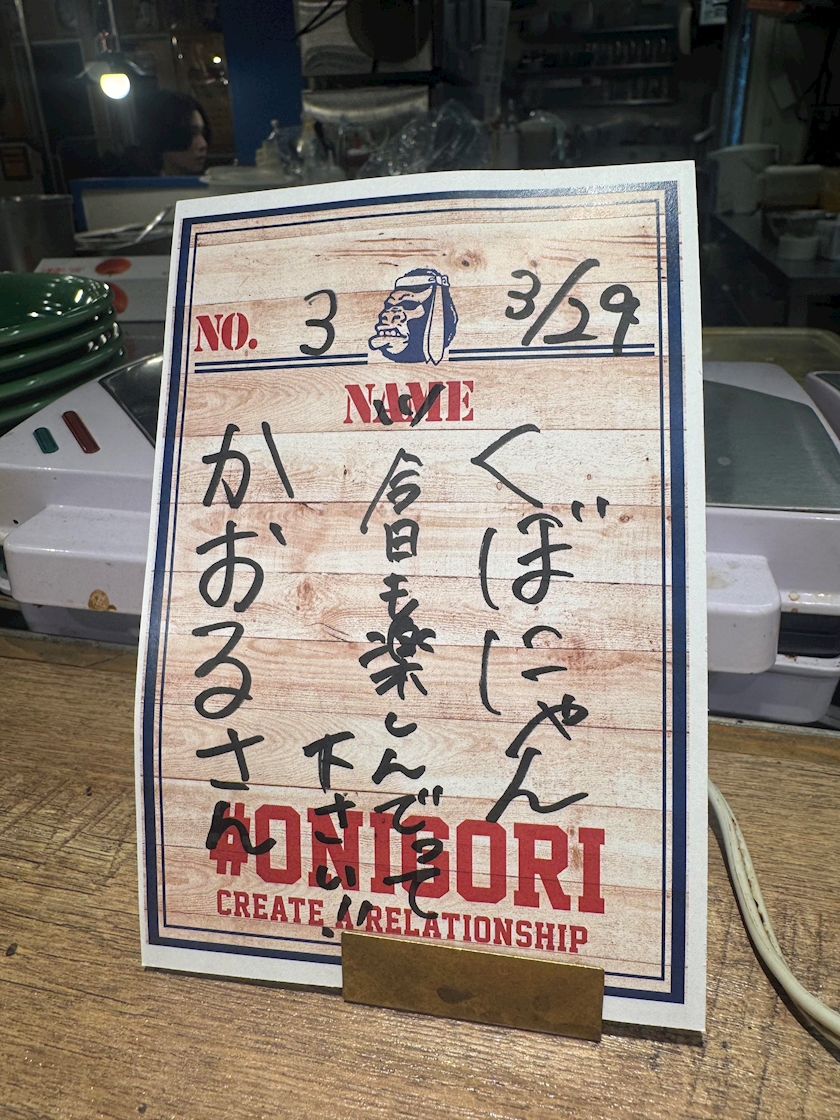 NO. 3 3/29
NAME
くぼにゃん
今日も楽しんでって
下さい!!
かおるさん
#ONIGORI
CREATE A RELATIONSHIP